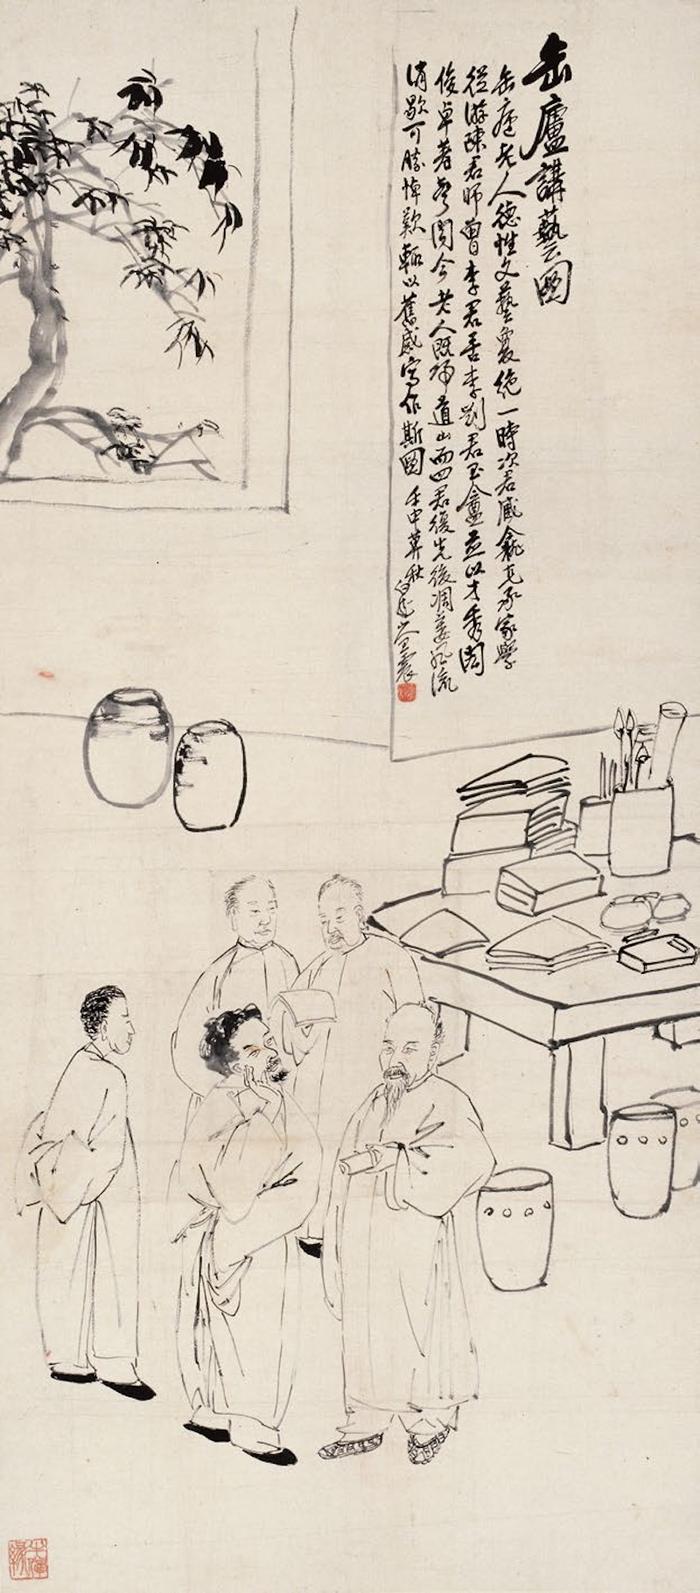 缶廬講藝圖
缶廬老人德性文藝夐絕一時次君臧龕克承家學
從游陳君師曾李君苦李劉君玉盦並以才秀閎
俊卓著聲聞今老人既歸道山而四君復先後凋萎風流
消歇可勝悼歎輒以舊感寫作斯圖 壬申莫秋白龍山人王震